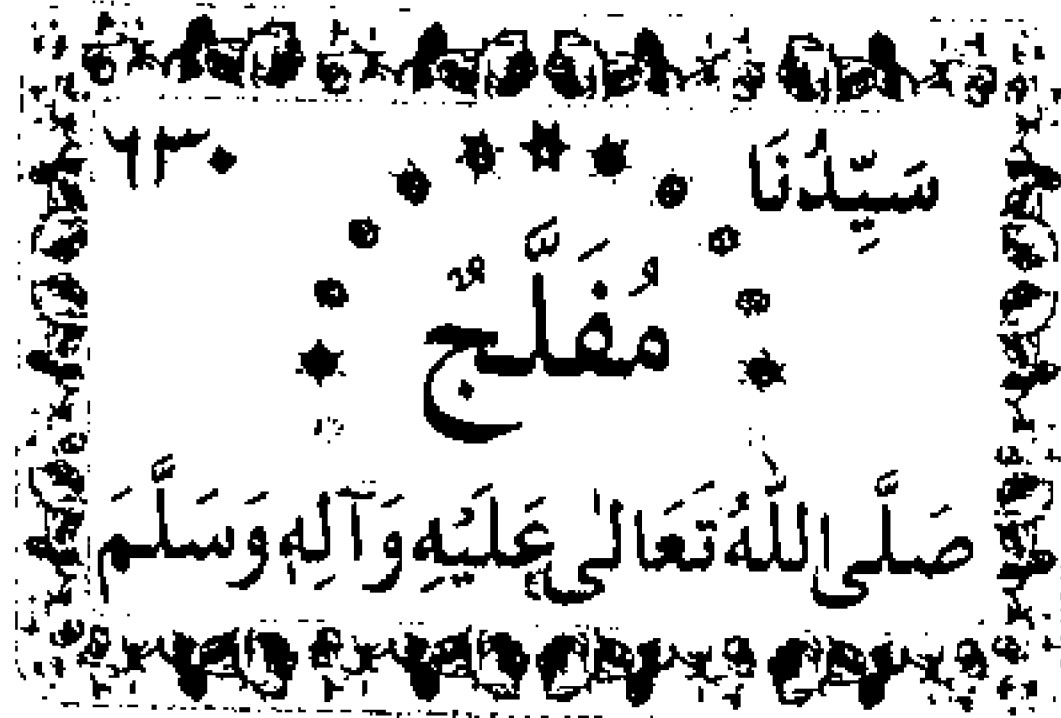 سَيِّدُنَا ٦٣٠
مُفَلَّجٌ
صَلَّى اللّٰهُ تَعَالٰى عَلَيْهِ وَآلِهٖ وَسَلَّمَ